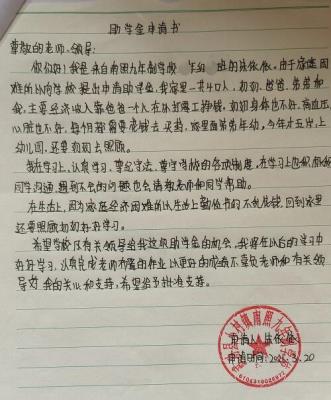 助学金申请书
尊敬的老师、领导:
你们好!我是来自南照九年制学校 年级 班的 依依。由于家庭困
难的从向学校提出申请助学金。我家里一共4口人,奶奶、爸爸、弟弟和
我,主要经济收入靠爸爸一个人在外打零工挣钱,奶奶身体也不好,高血压、
心脏也不好,每个月都需要花钱去买药,家里面弟弟年幼,今年才五岁,上
幼儿园,还要奶奶去照顾。
我在学习上,认真学习,遵纪守法,遵守学校的各项制度,在学习上也积极的和
同学沟通,遇到不会的问题也会请教老师和同学帮助。
在生活上,因为家庭经济困难所以生活上勤俭节约不乱花钱,回到家里
还要照顾奶奶好好学习。
希望学校及有关领导给我这次助学金的机会,我将在以后的学习中
好好学习,认真完成老师布置的作业以更好的成绩不辜负老师和有关领
导对我的关心和支持,希望给予批准支持。
申请人: 依依
申请时间: 3.20